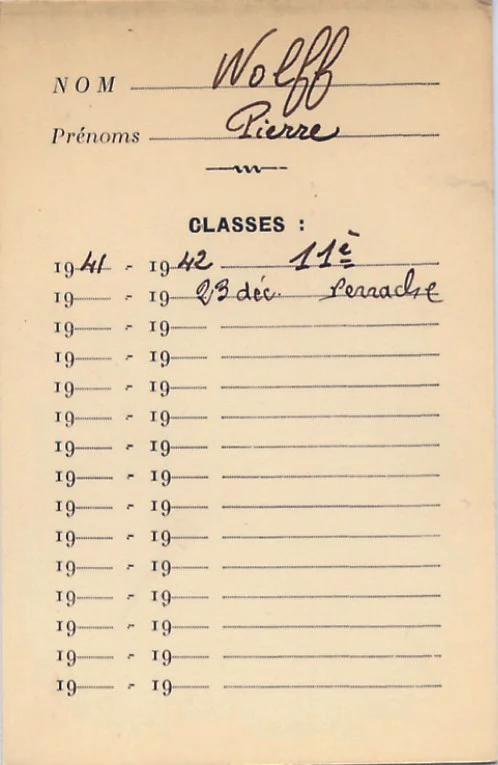 NOM Wolff
Prénoms Pierre
CLASSES :
1941 - 1942 11è
19 - 19 23 déc. Perrache
19 - 19
19 - 19
19 - 19
19 - 19
19 - 19
19 - 19
19 - 19
19 - 19
19 - 19
19 - 19
19 - 19
19 - 19
19 - 19